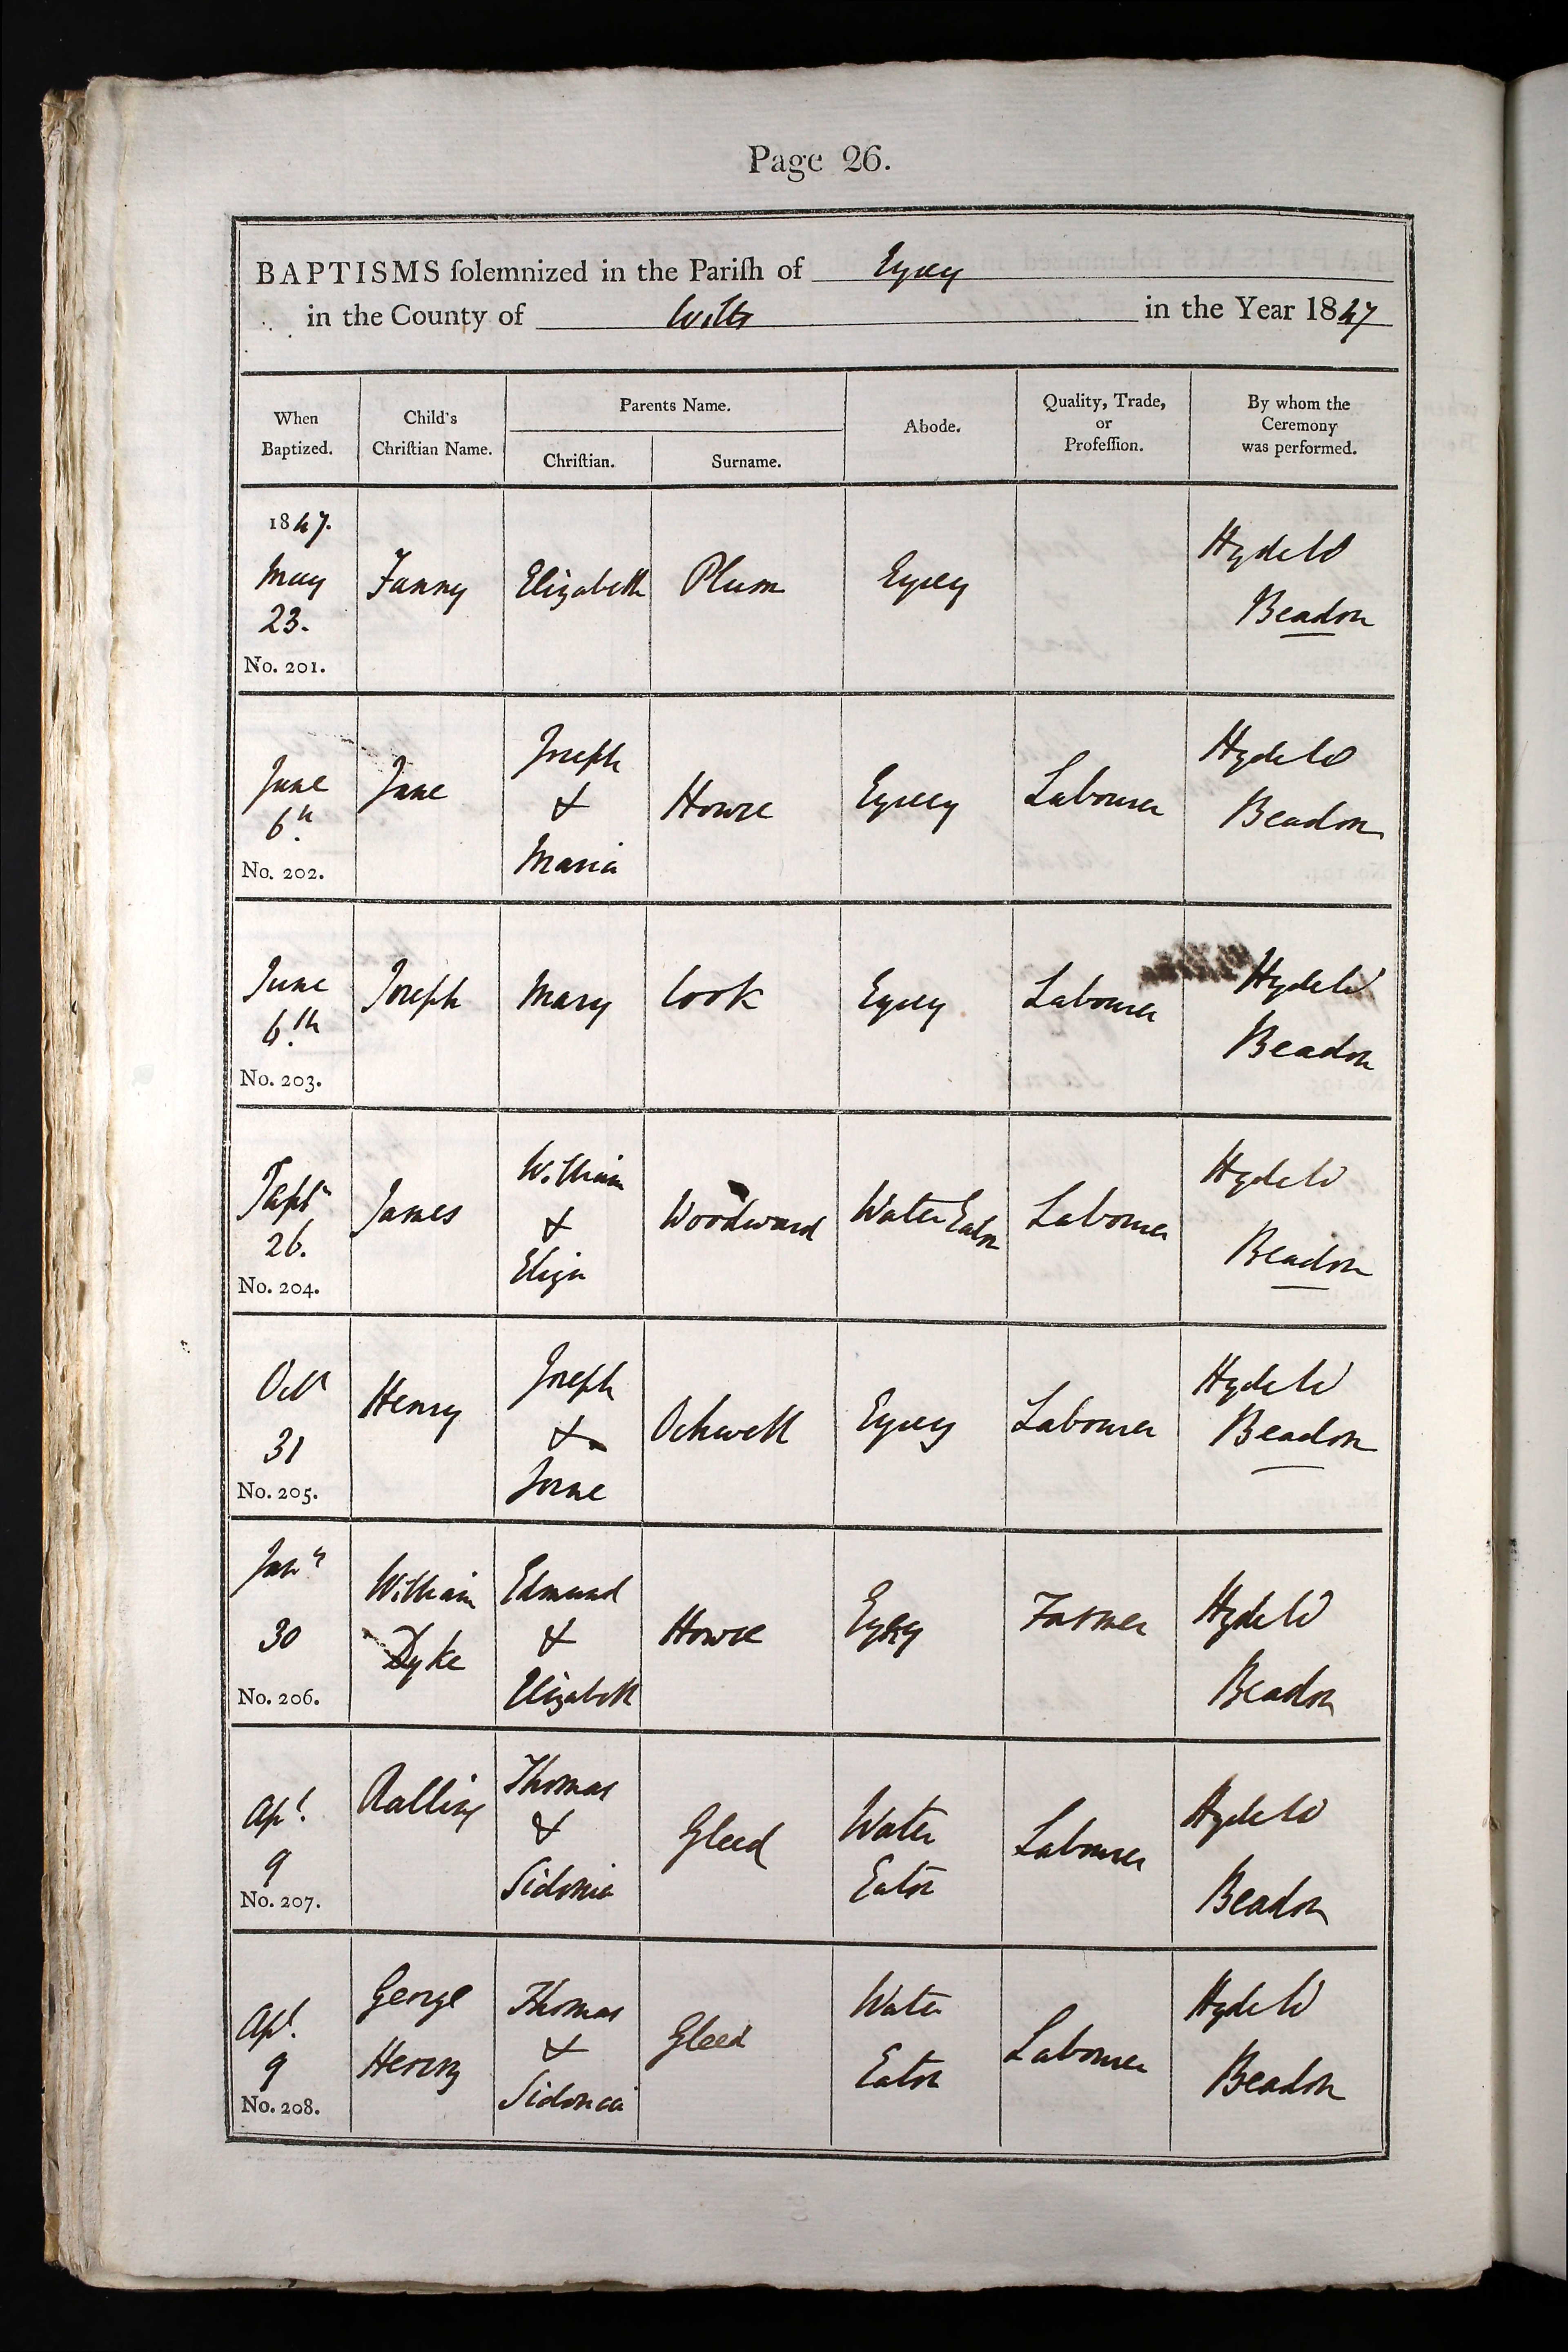 Page 26.
BAPTISMS ſolemnized in the Pariſh of Eysey
in the County of Wilts in the Year 1847
When Baptized.
Child's Chriſtian Name.
Parents Name.
Chriſtian.
Surname.
Abode.
Quality, Trade, or Profeſſion.
By whom the Ceremony was performed.
1847. May 23. No. 201.
Fanny
Elizabeth
Plum
Eysey
Hyde W Beadon
June 6th. No. 202.
Jane
Joseph & Maria
Howse
Eysey
Labourer
Hyde W Beadon
June 6th. No. 203.
Joseph
Mary
Cook
Eysey
Labourer
Hyde W Beadon
Septr 26. No. 204.
James
William & Eliza
Woodward
Water Eaton
Labourer
Hyde W Beadon
Octr 31 No. 205.
Henry
Joseph &
Ockwell
Eysey
Labourer
Hyde W Beadon
Jany 30 No. 206.
William Dyke
Edmund & Elizabeth
Howse
Eysey
Farmer
Hyde W Beadon
Apl. 9 No. 207.
Thomas & Sidonia
Gleed
Water Eaton
Labourer
Hyde W Beadon
Apl. 9 No. 208.
George Henry
Thomas & Sidonia
Gleed
Water Eaton
Labourer
Hyde W Beadon